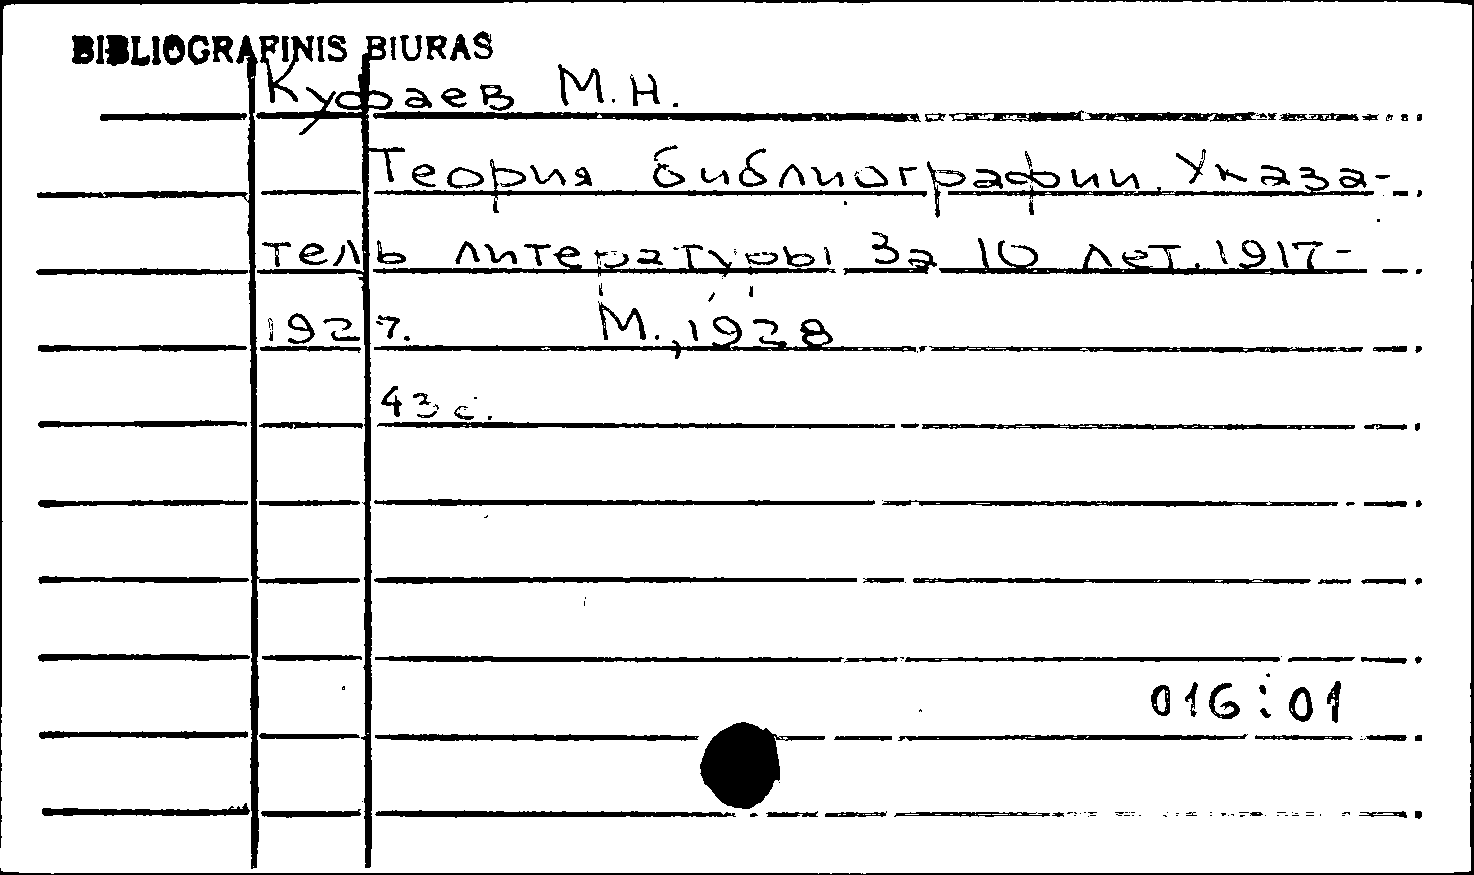 BIBLIOGRAFINIS BIURAS
Куфаев М.Н.
Теория библиографии. Указа-
тель литературы за 10 лет. 1917-
1927. М., 1928
43 с.
016:01